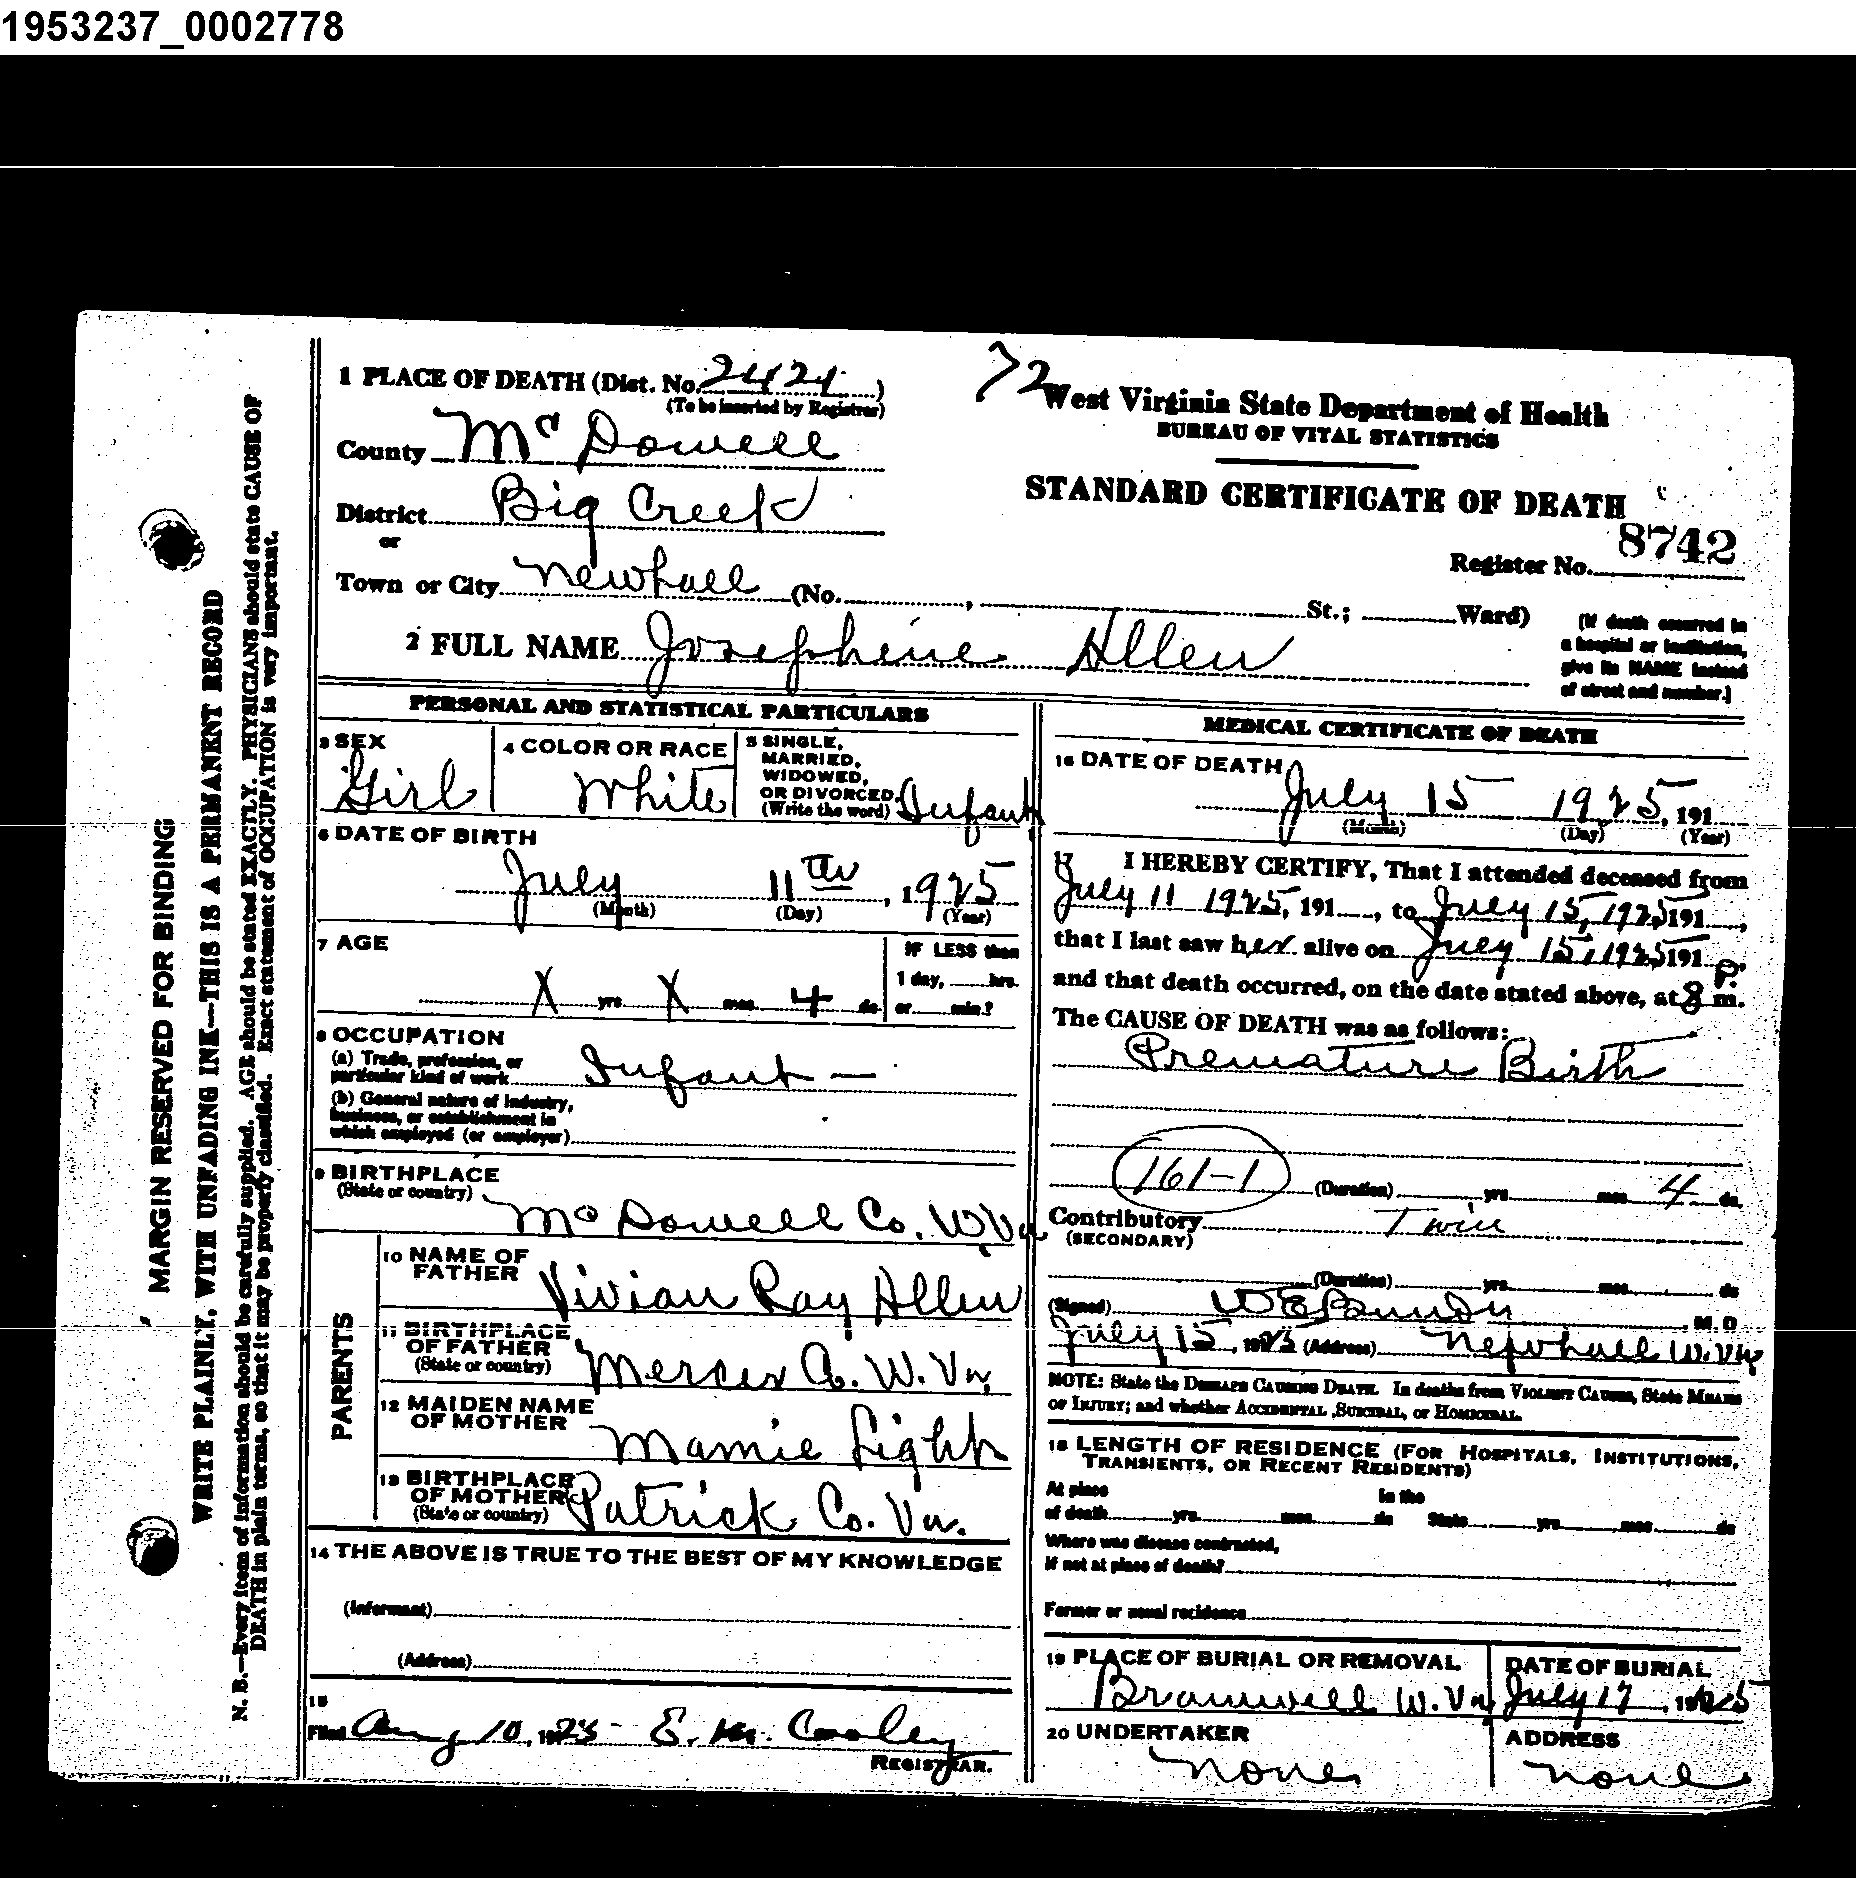 1953237_0002778
MARGIN RESERVED FOR BINDING
WRITE PLAINLY, WITH UNFADING INK—THIS IS A PERMANENT RECORD
N. B.—Every item of information should be carefully supplied. AGE should be stated EXACTLY. PHYSICIANS should state CAUSE OF
DEATH in plain terms, so that it may be properly classified. Exact statement of OCCUPATION is very important.
72
1 PLACE OF DEATH (Dist. No. 2424)
(To be inserted by Registrar)
County Mc Dowell
District Big Creek
or
Town or City Newhall (No. , St.; Ward)
West Virginia State Department of Health
BUREAU OF VITAL STATISTICS
STANDARD CERTIFICATE OF DEATH
Register No. 8742
(If death occurred in
a hospital or institution,
give its NAME instead
of street and number.)
2 FULL NAME Josephine Allen
PERSONAL AND STATISTICAL PARTICULARS
3 SEX
Girl
4 COLOR OR RACE
White
5 SINGLE,
MARRIED,
WIDOWED,
OR DIVORCED
(Write the word) Infant
6 DATE OF BIRTH
July 11th, 1925
(Month) (Day) (Year)
7 AGE
X yrs X mos 4 ds
IF LESS than
1 day, hrs.
or min.?
8 OCCUPATION
(a) Trade, profession, or
particular kind of work Infant —
(b) General nature of industry,
business, or establishment in
which employed (or employer)
9 BIRTHPLACE
(State or country)
Mc Dowell Co. W.Va
PARENTS
10 NAME OF
FATHER Vivian Ray Allen
11 BIRTHPLACE
OF FATHER
(State or country) Mercer Co. W. Va,
12 MAIDEN NAME
OF MOTHER Mamie Light
13 BIRTHPLACE
OF MOTHER
(State or country) Patrick Co. Va.
14 THE ABOVE IS TRUE TO THE BEST OF MY KNOWLEDGE
(Informant)
(Address)
15
Filed Aug 10, 1925- E. M. Cooley
REGISTRAR.
MEDICAL CERTIFICATE OF DEATH
16 DATE OF DEATH
July 15 1925, 191
(Month) (Day) (Year)
17 I HEREBY CERTIFY, That I attended deceased from
July 11 1925, 191 , to July 15, 1925 191 ,
that I last saw her alive on July 15, 1925 191
and that death occurred, on the date stated above, at 8 P. m.
The CAUSE OF DEATH was as follows:
Premature Birth
161-1 (Duration) yrs mos 4 ds
Contributory Twin
(SECONDARY)
(Duration) yrs mos ds
(Signed) W E Bundy M. D
July 15, 1925 (Address) Newhall W.Va
NOTE: State the DISEASE CAUSING DEATH. In deaths from VIOLENT CAUSES, State MEANS
OF INJURY; and whether ACCIDENTAL, SUICIDAL, or HOMICIDAL.
18 LENGTH OF RESIDENCE (FOR HOSPITALS, INSTITUTIONS,
TRANSIENTS, OR RECENT RESIDENTS)
At place In the
of death yrs mos ds State yrs mos ds
Where was disease contracted,
if not at place of death?
Former or usual residence
19 PLACE OF BURIAL OR REMOVAL
Bramwell W. Va,
DATE OF BURIAL
July 17, 1925
20 UNDERTAKER
None
ADDRESS
None